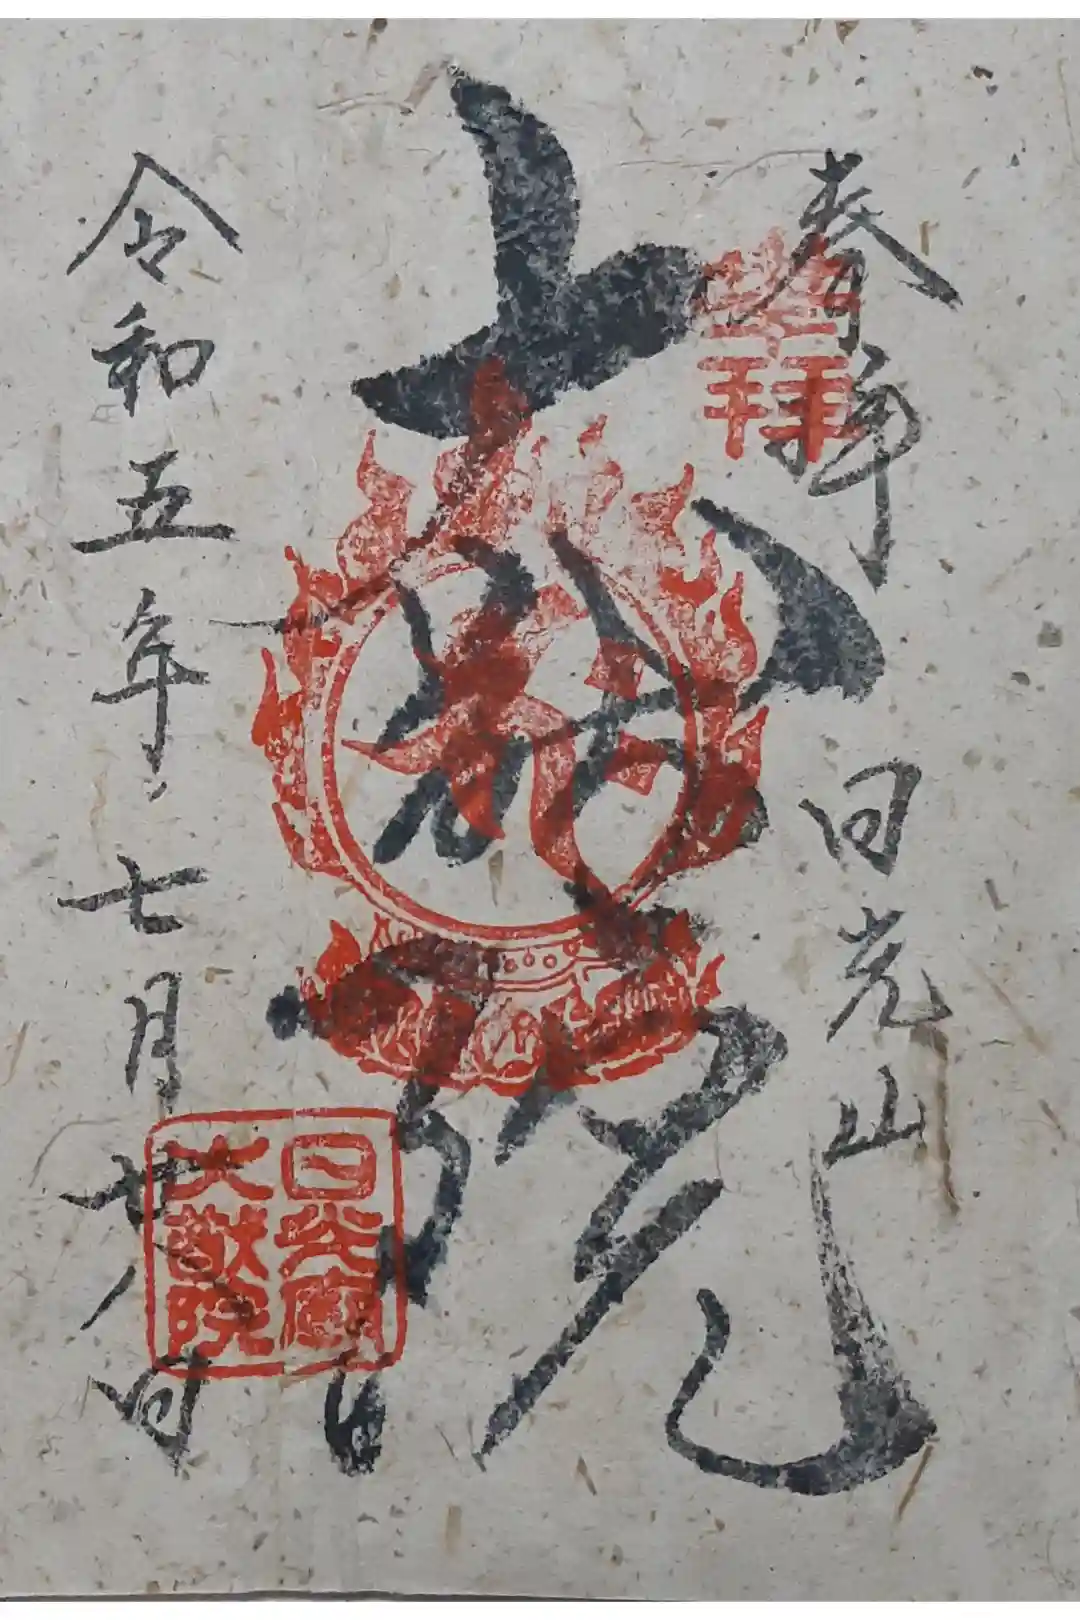 奉拝 日光山
大猷院
令和五年七月廿八日
日光廟
大猷院